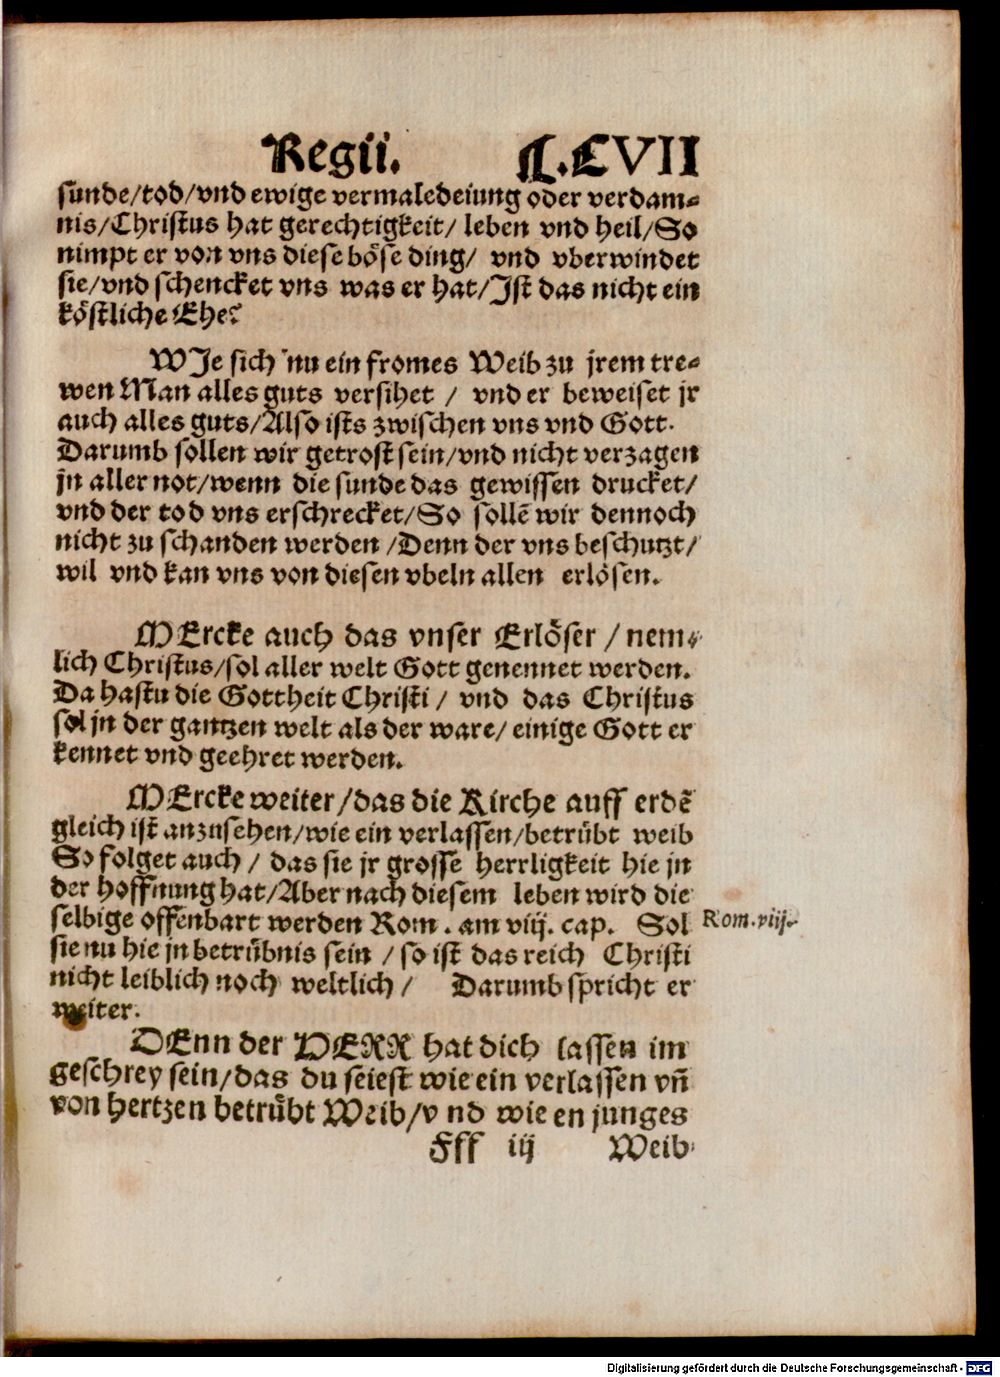 Regii. CC.CVII
sunde/tod/vnd ewige vermaledeiung oder verdam⸗
nis/Christus hat gerechtigkeit/ leben vnd heil/So
nimpt er von vns diese böse ding/ vnd vberwindet
sie/vnd schencket vns was er hat/Jst das nicht ein
köstliche Ehe?
WJe sich nu ein fromes Weib zu jrem tre⸗
wen Man alles guts versihet / vnd er beweiset jr
auch alles guts/Also ists zwischen vns vnd Gott.
Darumb sollen wir getrost sein/vnd nicht verzagen
jn aller not/wenn die sunde das gewissen drucket/
vnd der tod vns erschrecket/So sollē wir dennoch
nicht zu schanden werden /Denn der vns beschutzt/
wil vnd kan vns von diesen vbeln allen erlösen.
MErcke auch das vnser Erlöser / nem⸗
lich Christus/sol aller welt Gott genennet werden.
Da hastu die Gottheit Christi / vnd das Christus
sol jn der gantzen welt als der ware/ einige Gott er
kennet vnd geehret werden.
MErcke weiter/das die Kirche auff erdē
gleich ist anzusehen/wie ein verlassen/betrübt weib
So folget auch / das sie jr grosse herrligkeit hie jn
der hoffnung hat/Aber nach diesem leben wird die
selbige offenbart werden Rom . am viij. cap. Sol
Rom.viij.
sie nu hie jn betrübnis sein / so ist das reich Christi
nicht leiblich noch weltlich / Darumb spricht er
weiter.
DEnn der HERR hat dich lassen im
geschrey sein/das du seiest wie ein verlassen vñ
von hertzen betrübt Weib/v nd wie en junges
Fff iij Weib
Digitalisierung gefördert durch die Deutsche Forschungsgemeinschaft - DFG